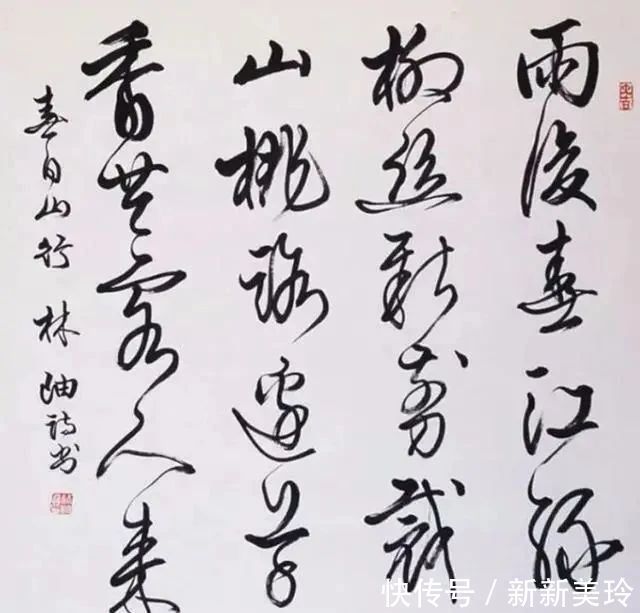 雨後春江綠
柳絲新剪裁
山桃路邊草
香共客人來
春日山行 林岫詩书
快传号 / 新新美玲